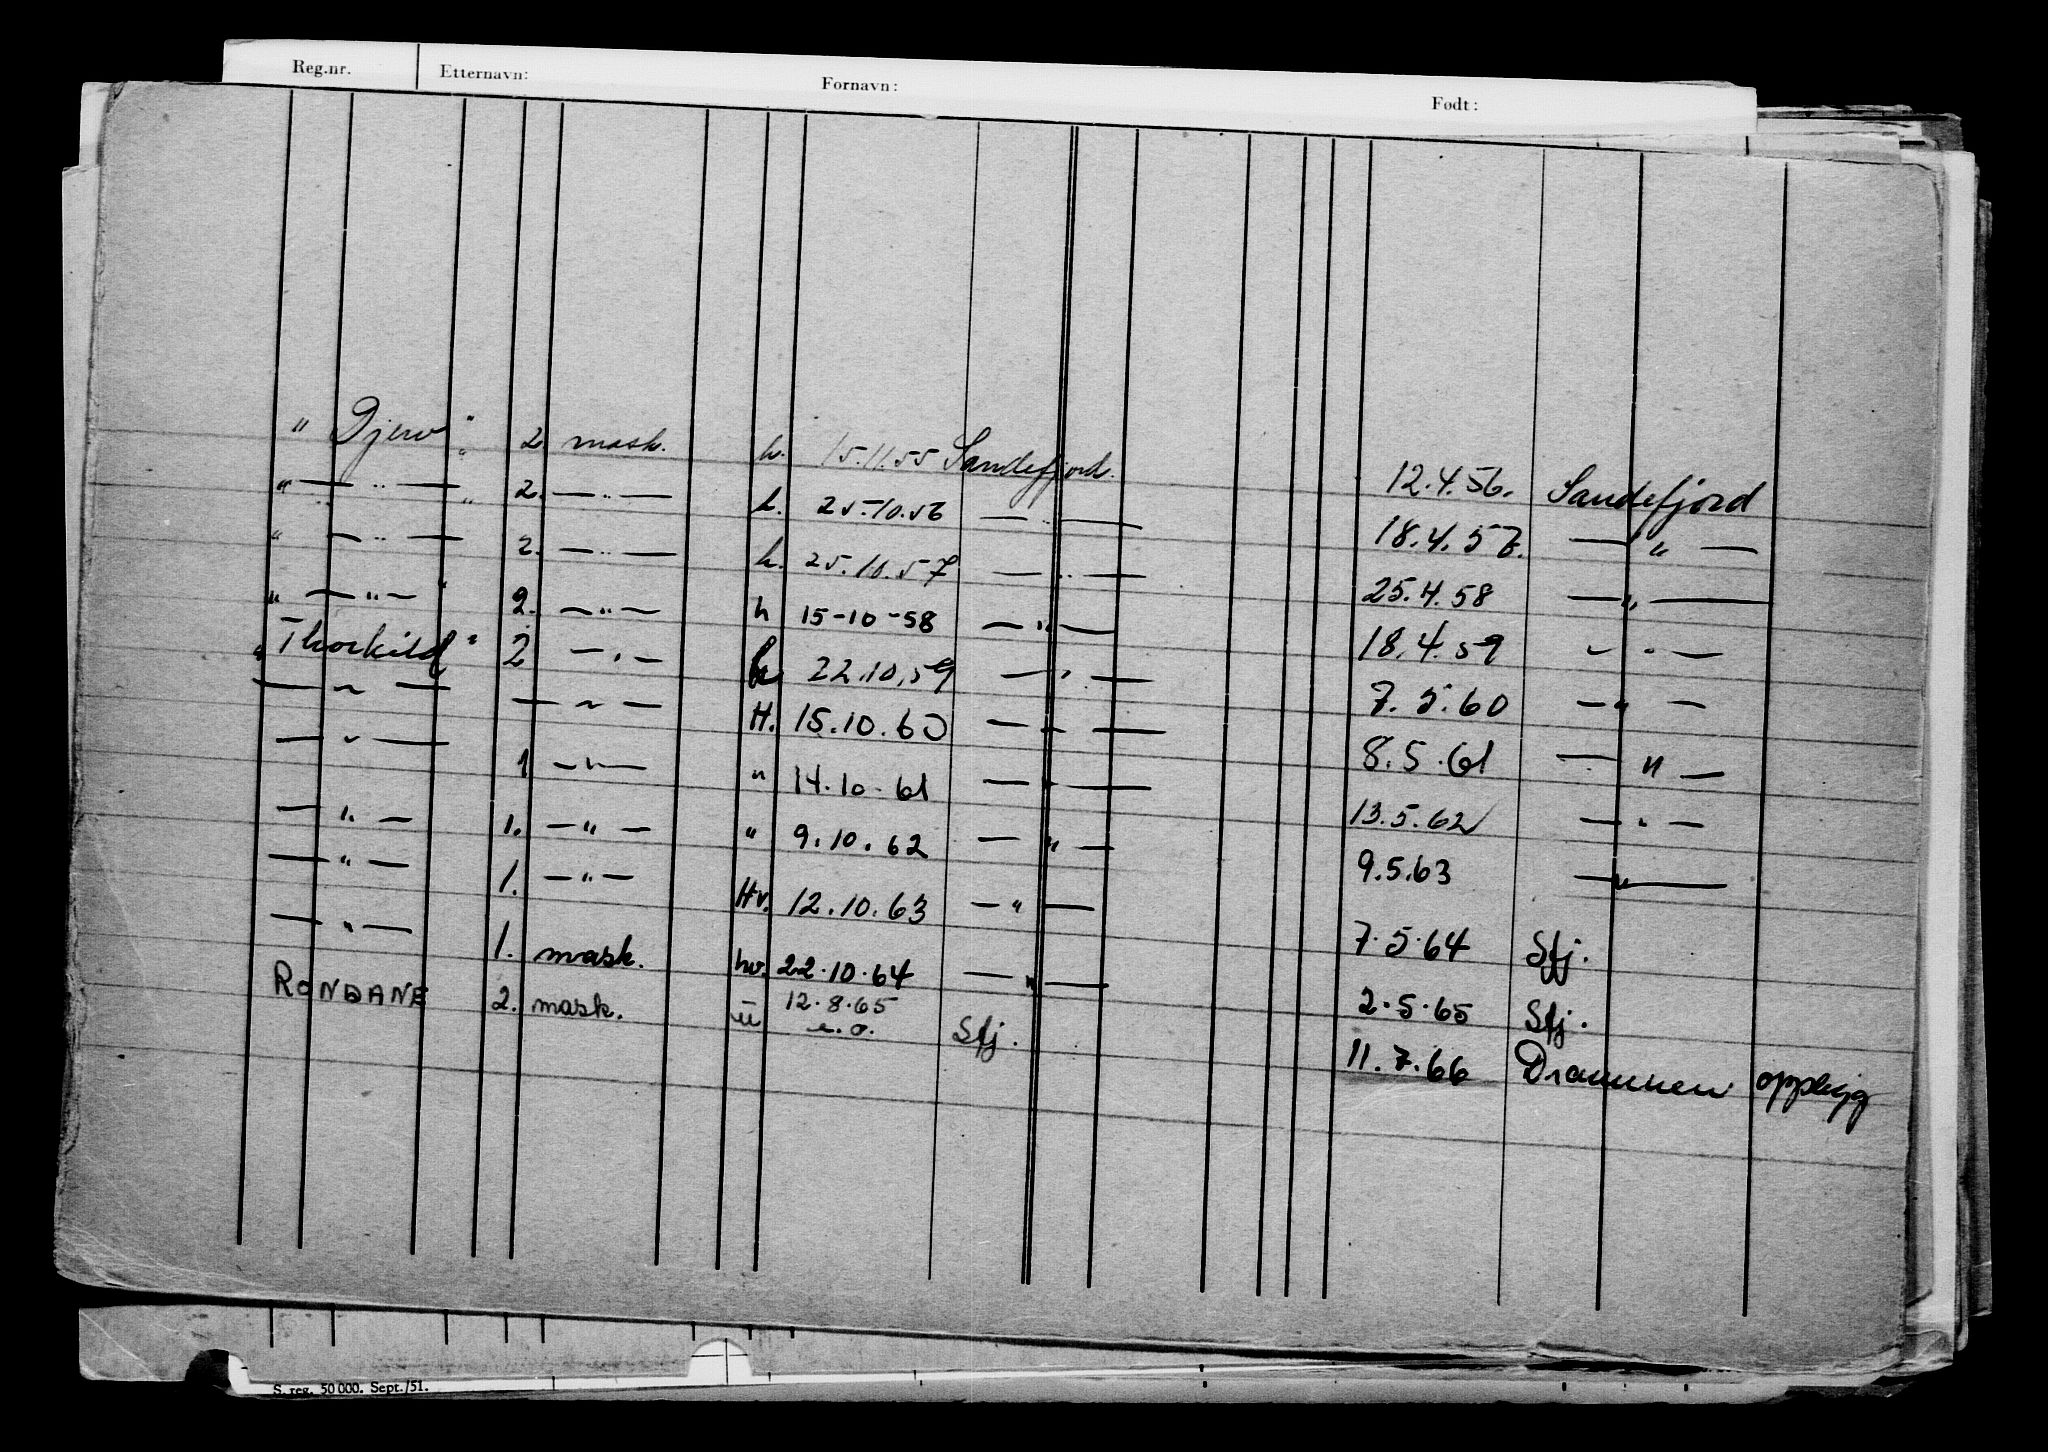 Reg.nr. Etternavn: Fornavn: Født:
" Djerv " 2 mask. h. 15.11.55 Sandefjord. 12.4.56. Sandefjord
" — " — " 2. — " — h. 25.10.56 — " — 18.4.57. — " —
" — " — 2. — " — h. 25.10.57 — " — 25.4.58 — " —
" — " — " 2. — " — h 15-10-58 — " — 18.4.59 — " —
" Thorkild " 2 — " — h 22.10.59 — " — 7.5.60 — " —
— " — — " — H. 15.10.60 — " — 8.5.61 — " —
— " — 1 — " — " 14.10.61 — " — 13.5.62 — " —
— " — 1. — " — " 9.10.62 — " — 9.5.63 — " —
— " — 1. — " — Hv. 12.10.63 — " — 7.5.64 Sfj.
— " — 1. mask. hv. 22.10.64 — " — 2.5.65 Sfj.
RONDANE 2. mask. u 12.8.65 Sfj. 11.7.66 Drammen opphygg
S. reg. 50 000. Sept./51.